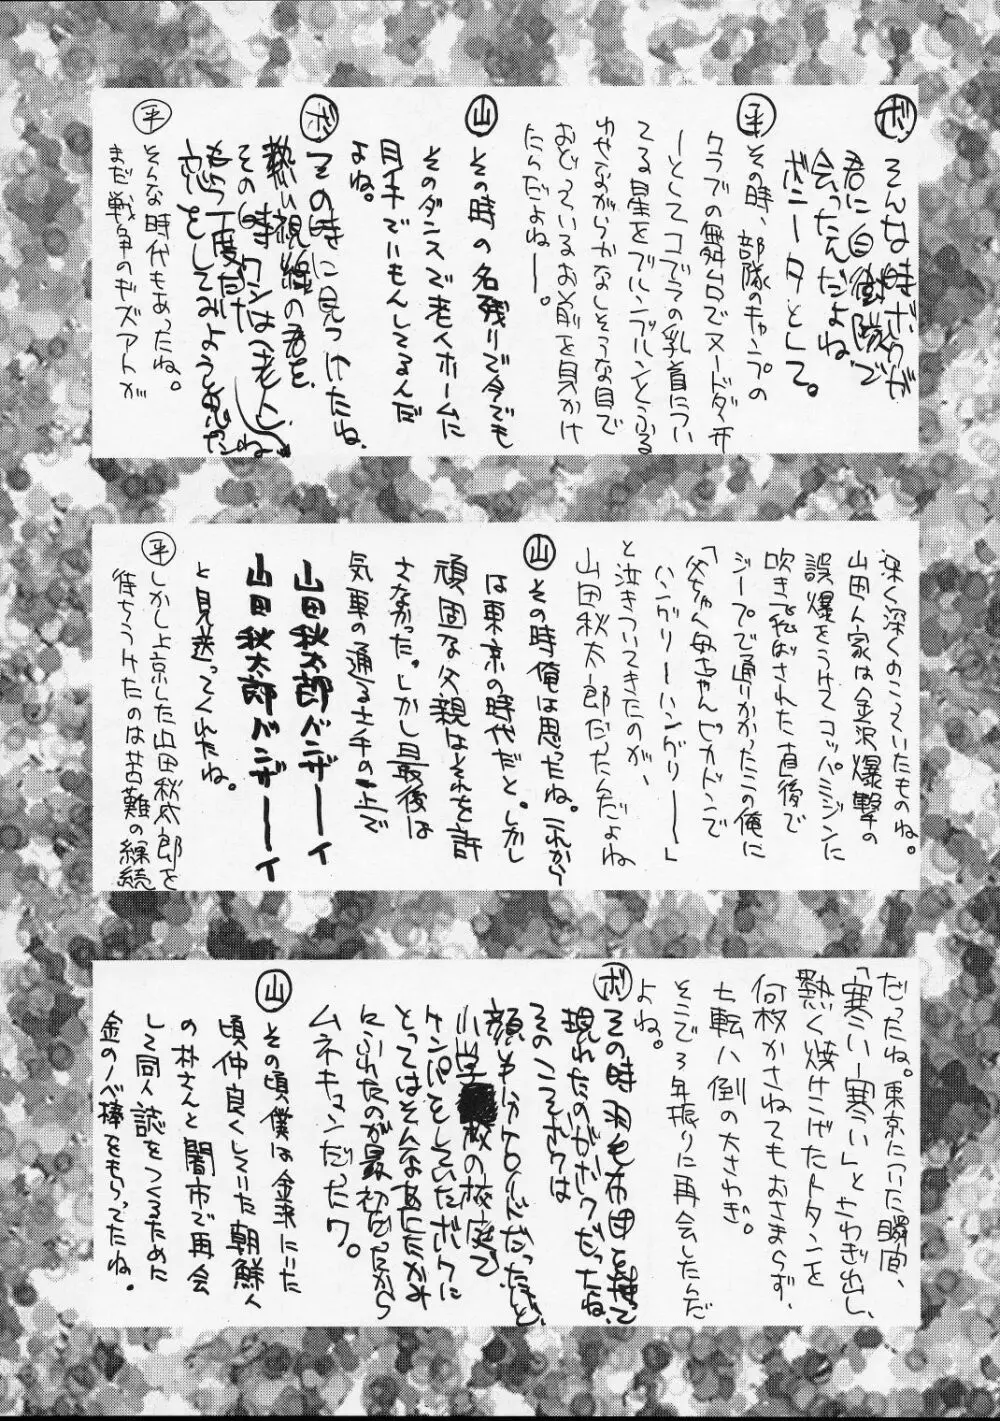 ボ そんな時ボクが
君に白樹隊で
会ったんだよね
ボニータとして。
平 その時、部隊のキャンプの
クラブの舞台でヌードダンサ
ーとしてコデラの乳首につい
てる星をブルンブルンとふる
わせながらかなしそうな目で
おどっているお前を見かけ
たらだよねー。
山 その時の名残りで今でも
そのダンスで老人ホームに
目手でいもんしてるんだ
よね。
ボ その時に見つけたね
熱い視線の君を、
その時ワンは老人
もう一度だけ
恋をしてみようと思った
ね
平 そんな時代もあったね。
まだ戦争のキズアトが
深く深くのこっていたものね。
山田一家は金沢爆撃の
誤爆をうけてコッパミジンに
吹きて飛ばされた直後で
ジープで通りかかったこの俺に
「父ちゃん母ちゃんピカドンで
ハングリーハングリーー」
と泣きついてきたのが、
山田秋太郎だったんだよね
山 その時俺は思ったね。これから
は東京の時代だと。しかし
頑固な父親はそれを許
さなかった。しかし最後は
気車の通る土手の上で
山田秋太郎バンザーーイ
山田秋太郎バンザーーイ
と見送ってくれたね。
平 しかし上京した山田秋太郎を
待ちうけたのは苦難の継続
だったね。東京についた瞬間、
「寒うい寒うい」とさわぎ出し、
熱く焼けこげたトタンを
何枚かさねてもおさまらず、
七転八倒の大さわぎ。
そこで3年振りに再会したんだ
よね。
ボ その時羽毛布団と持って
現れたのがボクだったね
そのころボクは
顔しか分ロリだったけど、
小学校の校庭で
ケンパをしていたボクに
とってはそんなあたたかみ
にふれたのが最初だったから
ムネキュンだったワ。
山 その頃僕は金沢にいた
頃仲良くしていた朝鮮人
の朴さんと闇市で再会
して同人誌をつくるために
金のノベ棒をもらってたね。